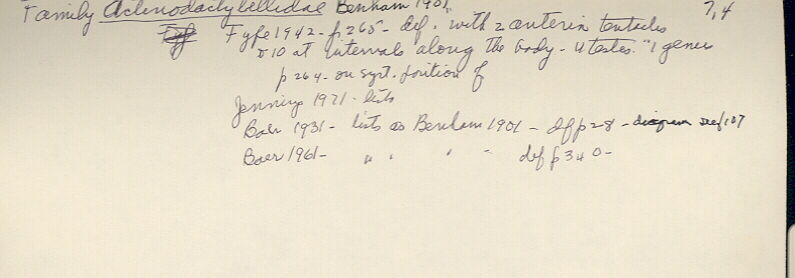 Family Actinodactylellidae Benham 1901, 7,4
Fyfe 1942 - p 265 - def. with 2 anterior tentacles
& 10 at intervals along the body - 4 testes. "1 genus
p 264 - on syst. position of
Jennings 1971 - lists
Baer 1931 - lists as Benham 1901 - df p 28 - diagram
Baer 1961 - " " " - def p 340 -